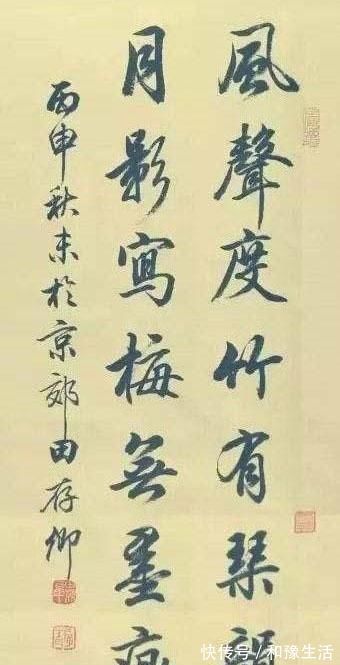 風聲度竹有琴
月影寫梅無墨
丙申秋末於京郊田存卿
快传号/和豫生活